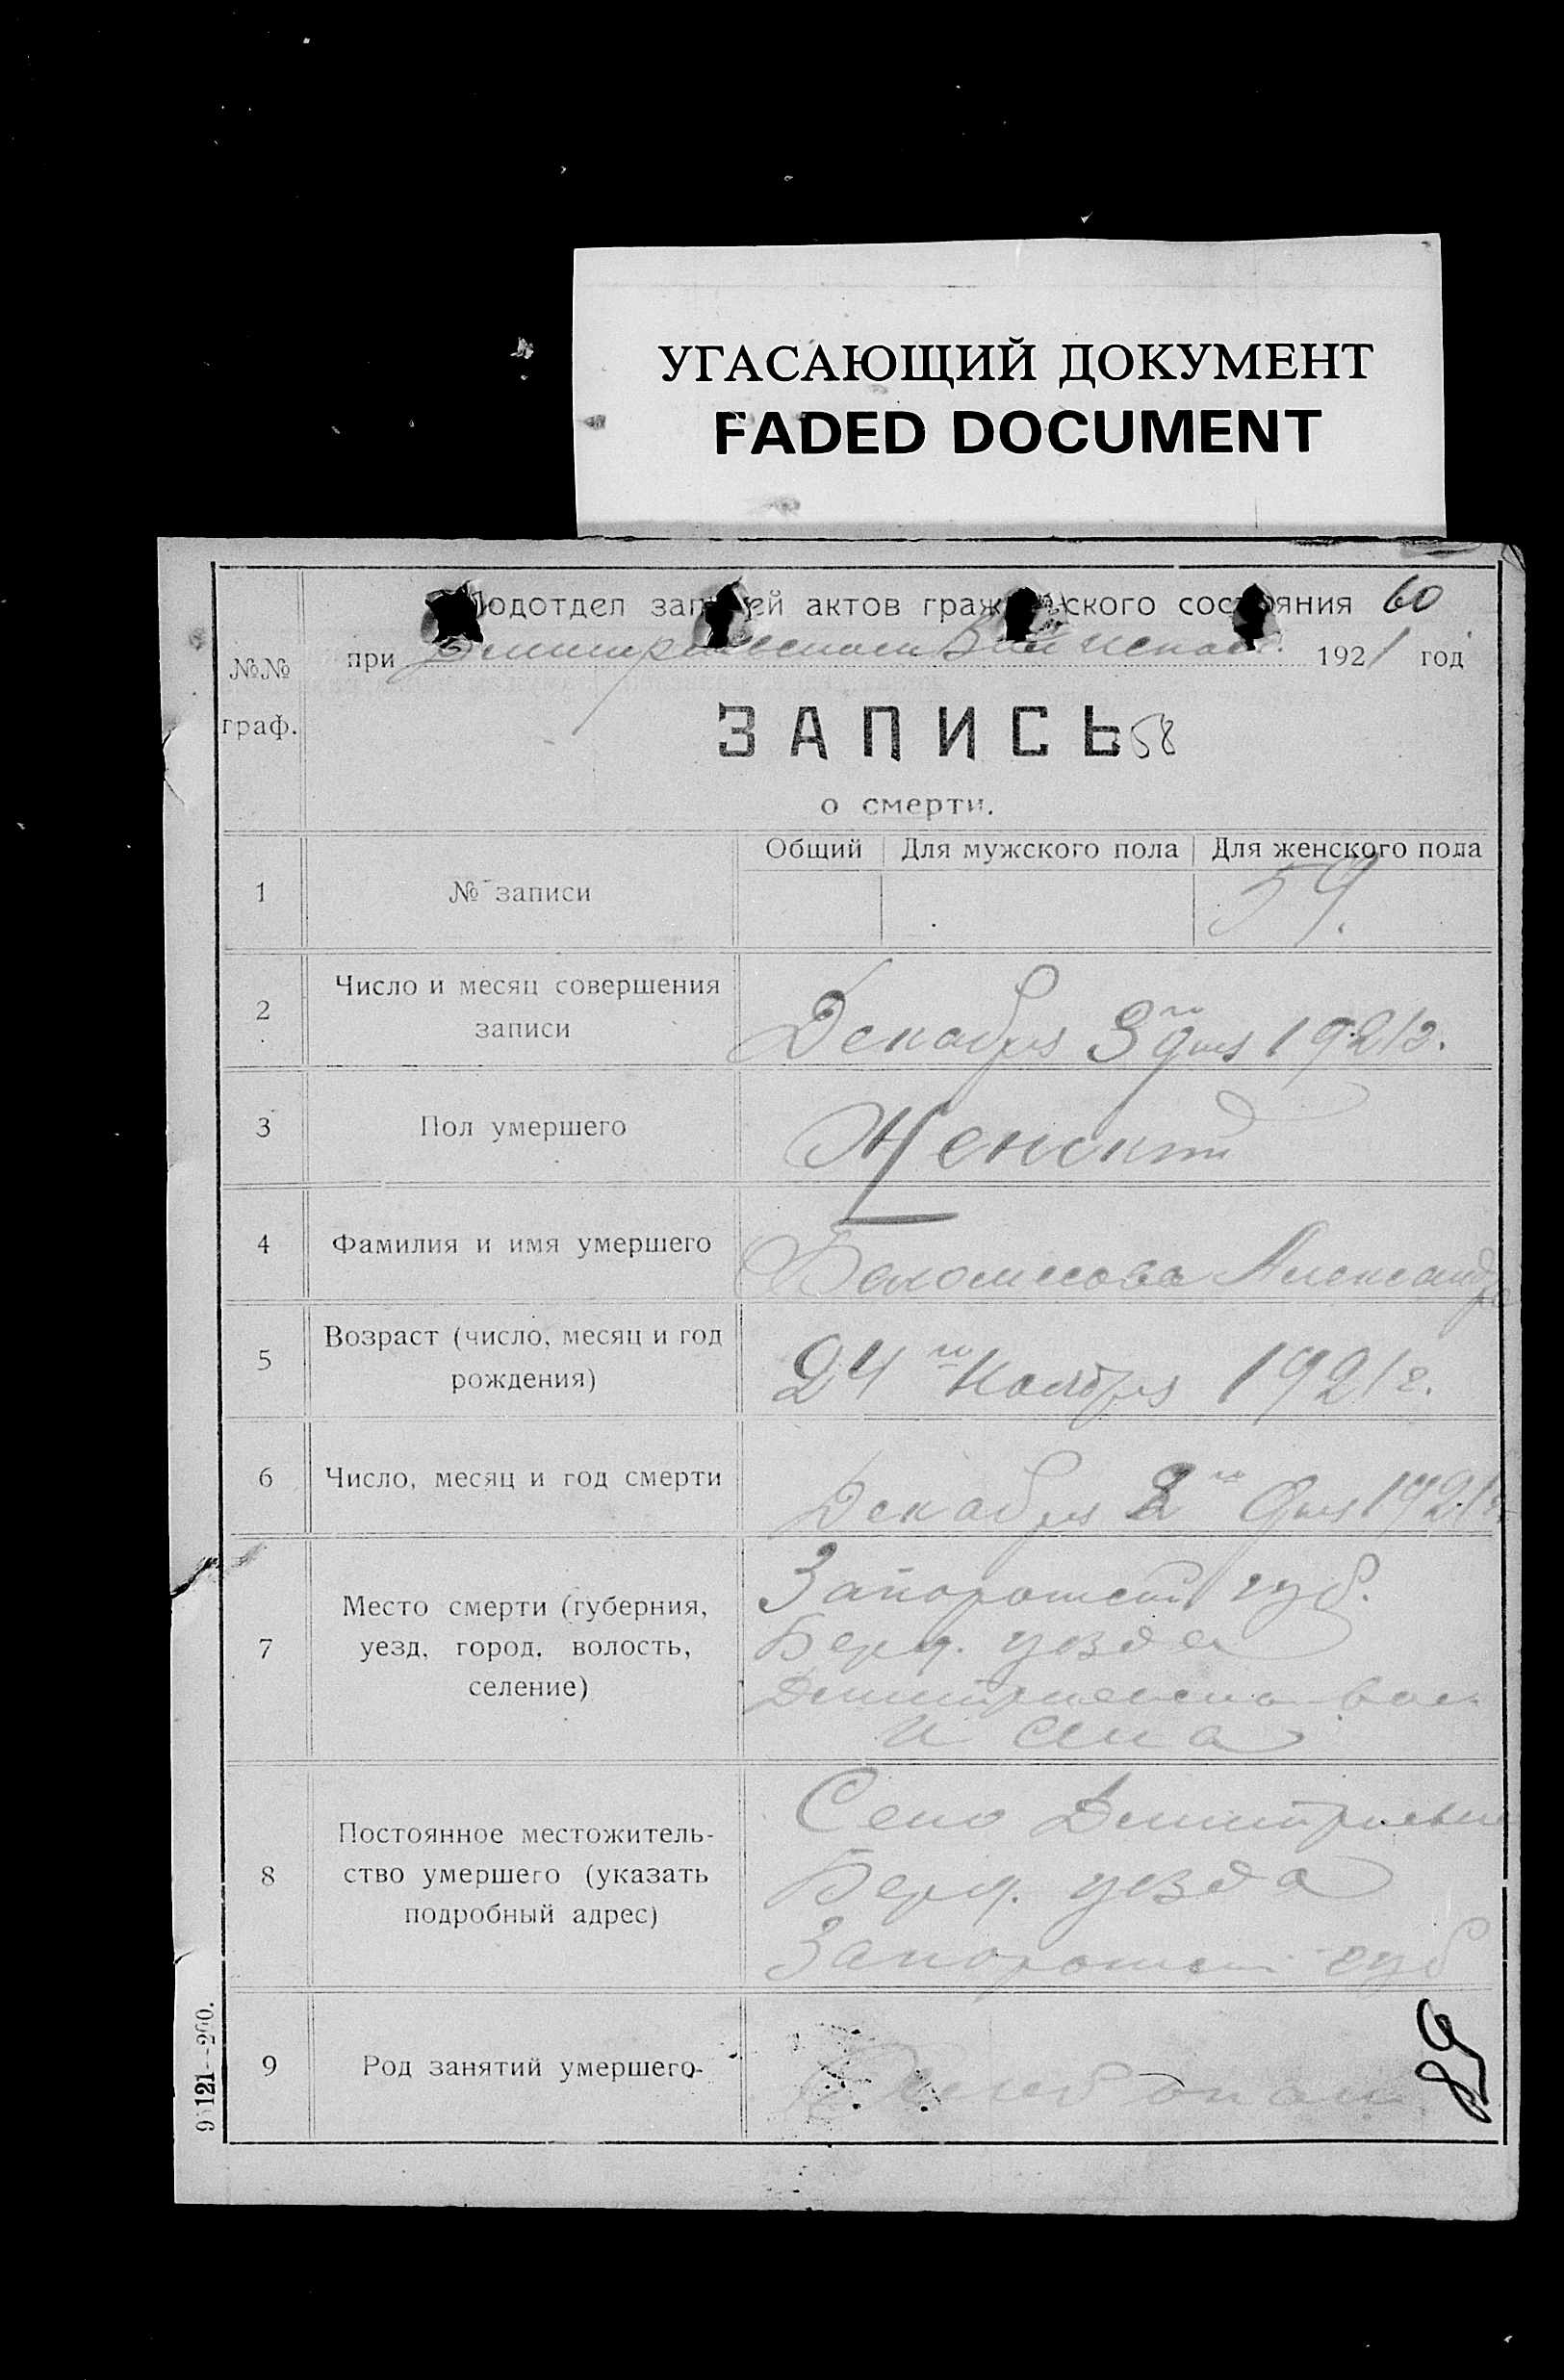 УГАСАЮЩИЙ ДОКУМЕНТ
FADED DOCUMENT
Подотдел записей актов гражданского состояния 60
№№ граф.
при 1921 год
ЗАПИСЬ 58
о смерти.
Общий Для мужского пола Для женского пола
1 № записи 59.
2 Число и месяц совершения записи
Декабря 3го дня 1921г.
3 Пол умершего Женский
4 Фамилия и имя умершего
Александра
5 Возраст (число, месяц и год рождения)
24го Ноября 1921г.
6 Число, месяц и год смерти
Декабря 2го дня 1921г.
7 Место смерти (губерния, уезд, город, волость, селение)
Запорожской губ.
Берд. уезда
Дмитриевской вол.
и села
8 Постоянное местожительство умершего (указать подробный адрес)
Село Дмитриевка
Берд. уезда
Запорожской губ
9 Род занятий умершего
9121—200.